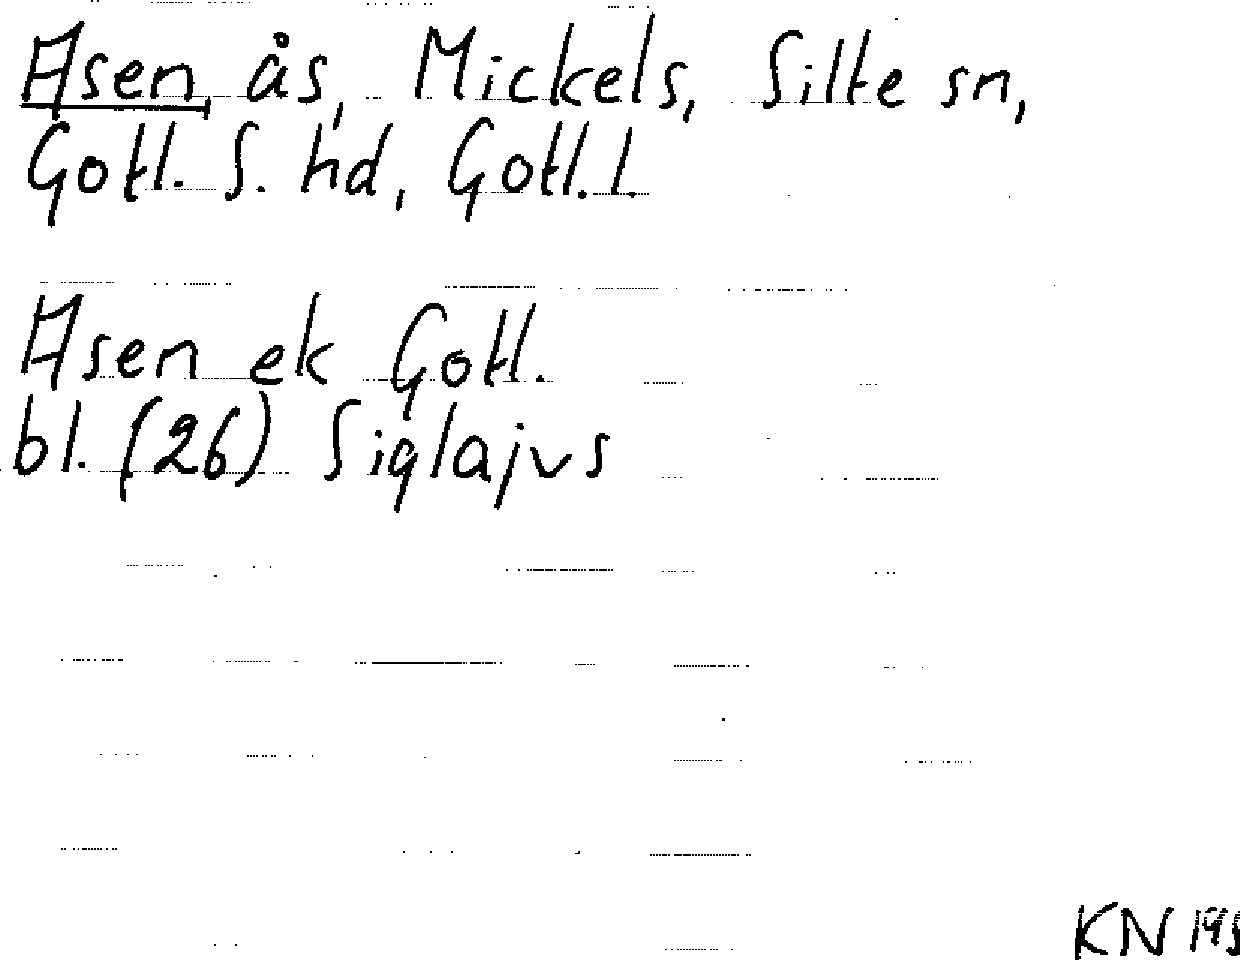 Asen ås, Mickels, Silte sn,
Gotl. S. hd, Gotl. l.
Asen ek Gotl.
bl. (26) Siglajvs
KN